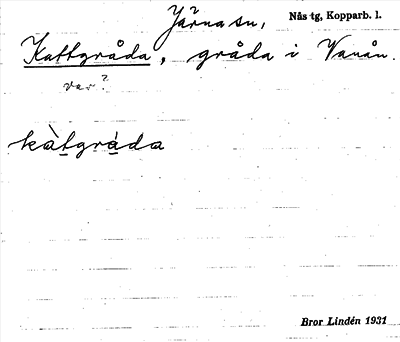 Järna sn, Nås tg, Kopparb. l.
Kattgråda, gråda i Vanån.
var?
kàtgráda
Bror Lindén 1931